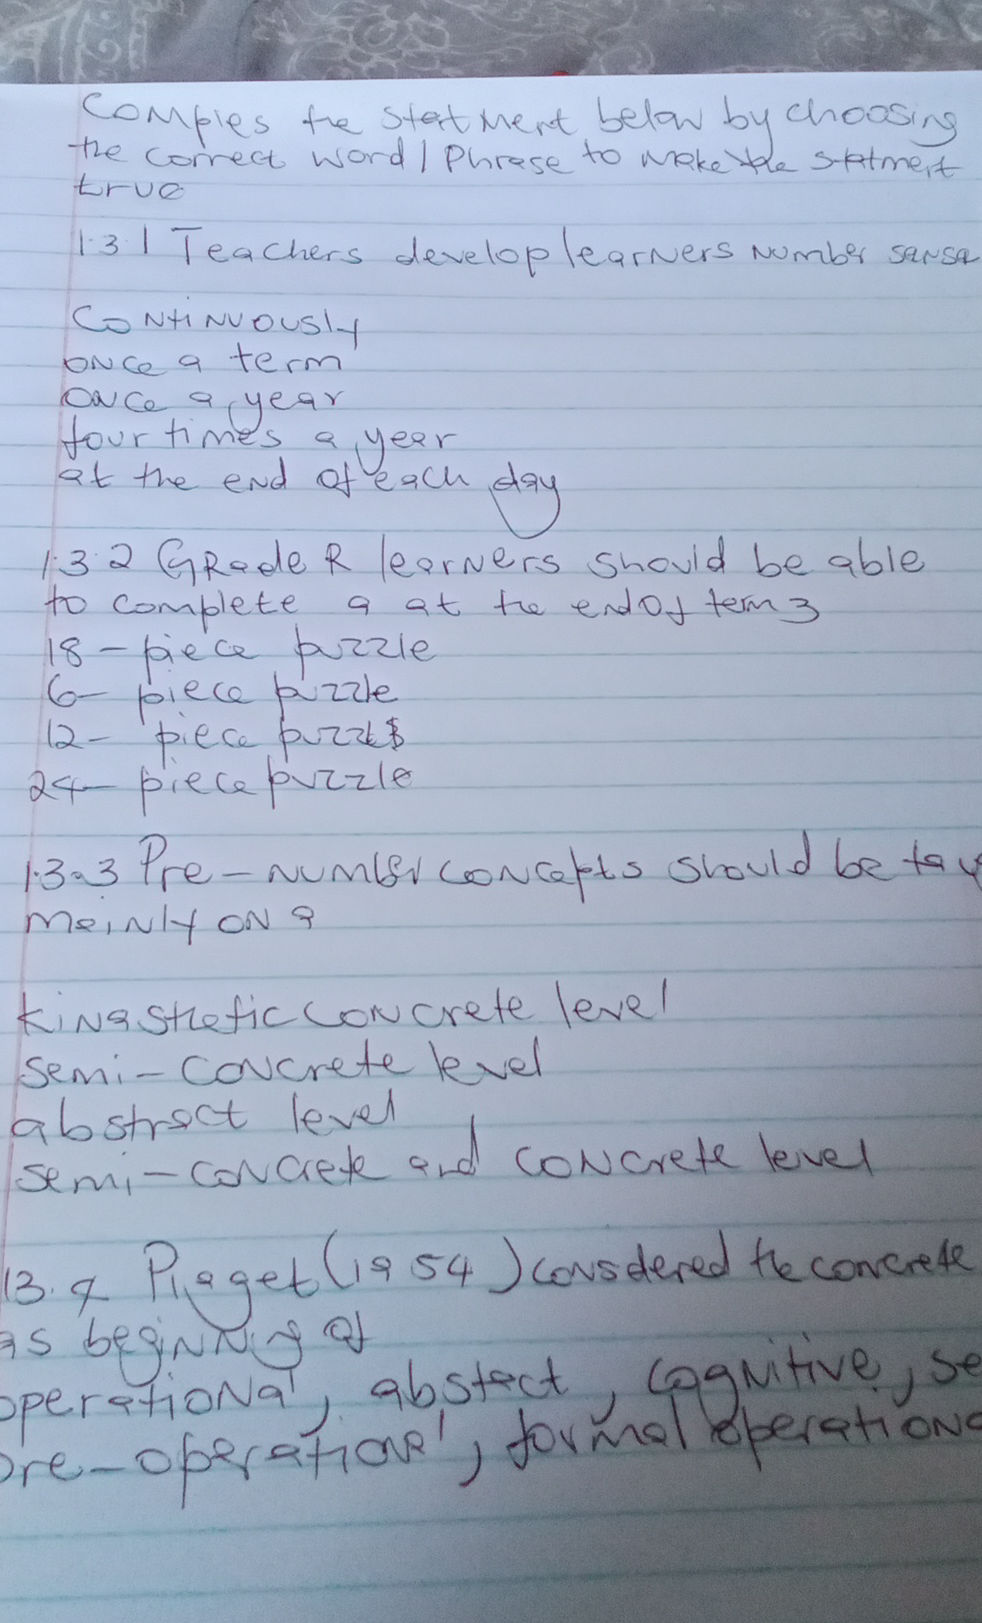 Comples the statment below by choosing
the correct word / Phrase to make the statment
true
1.3.1 Teachers develop learners number sensa
Continuously
once a term
once a year
four times a year
at the end of each day
1.3.2 Grade R learners should be able
to complete a at the end of term 3
18 - piece puzzle
6 - piece puzzle
12 - piece puzzle
24 - piece puzzle
1.3.3 Pre - number concepts should be tau
mainly on a
kinasthetic concrete level
semi - concrete level
abstract level
semi - concrete and concrete level
13.4 Piaget (1954) consdered the concrete
as beginning of
operational, abstect, cognitive, se
pre - operational, formal operationa